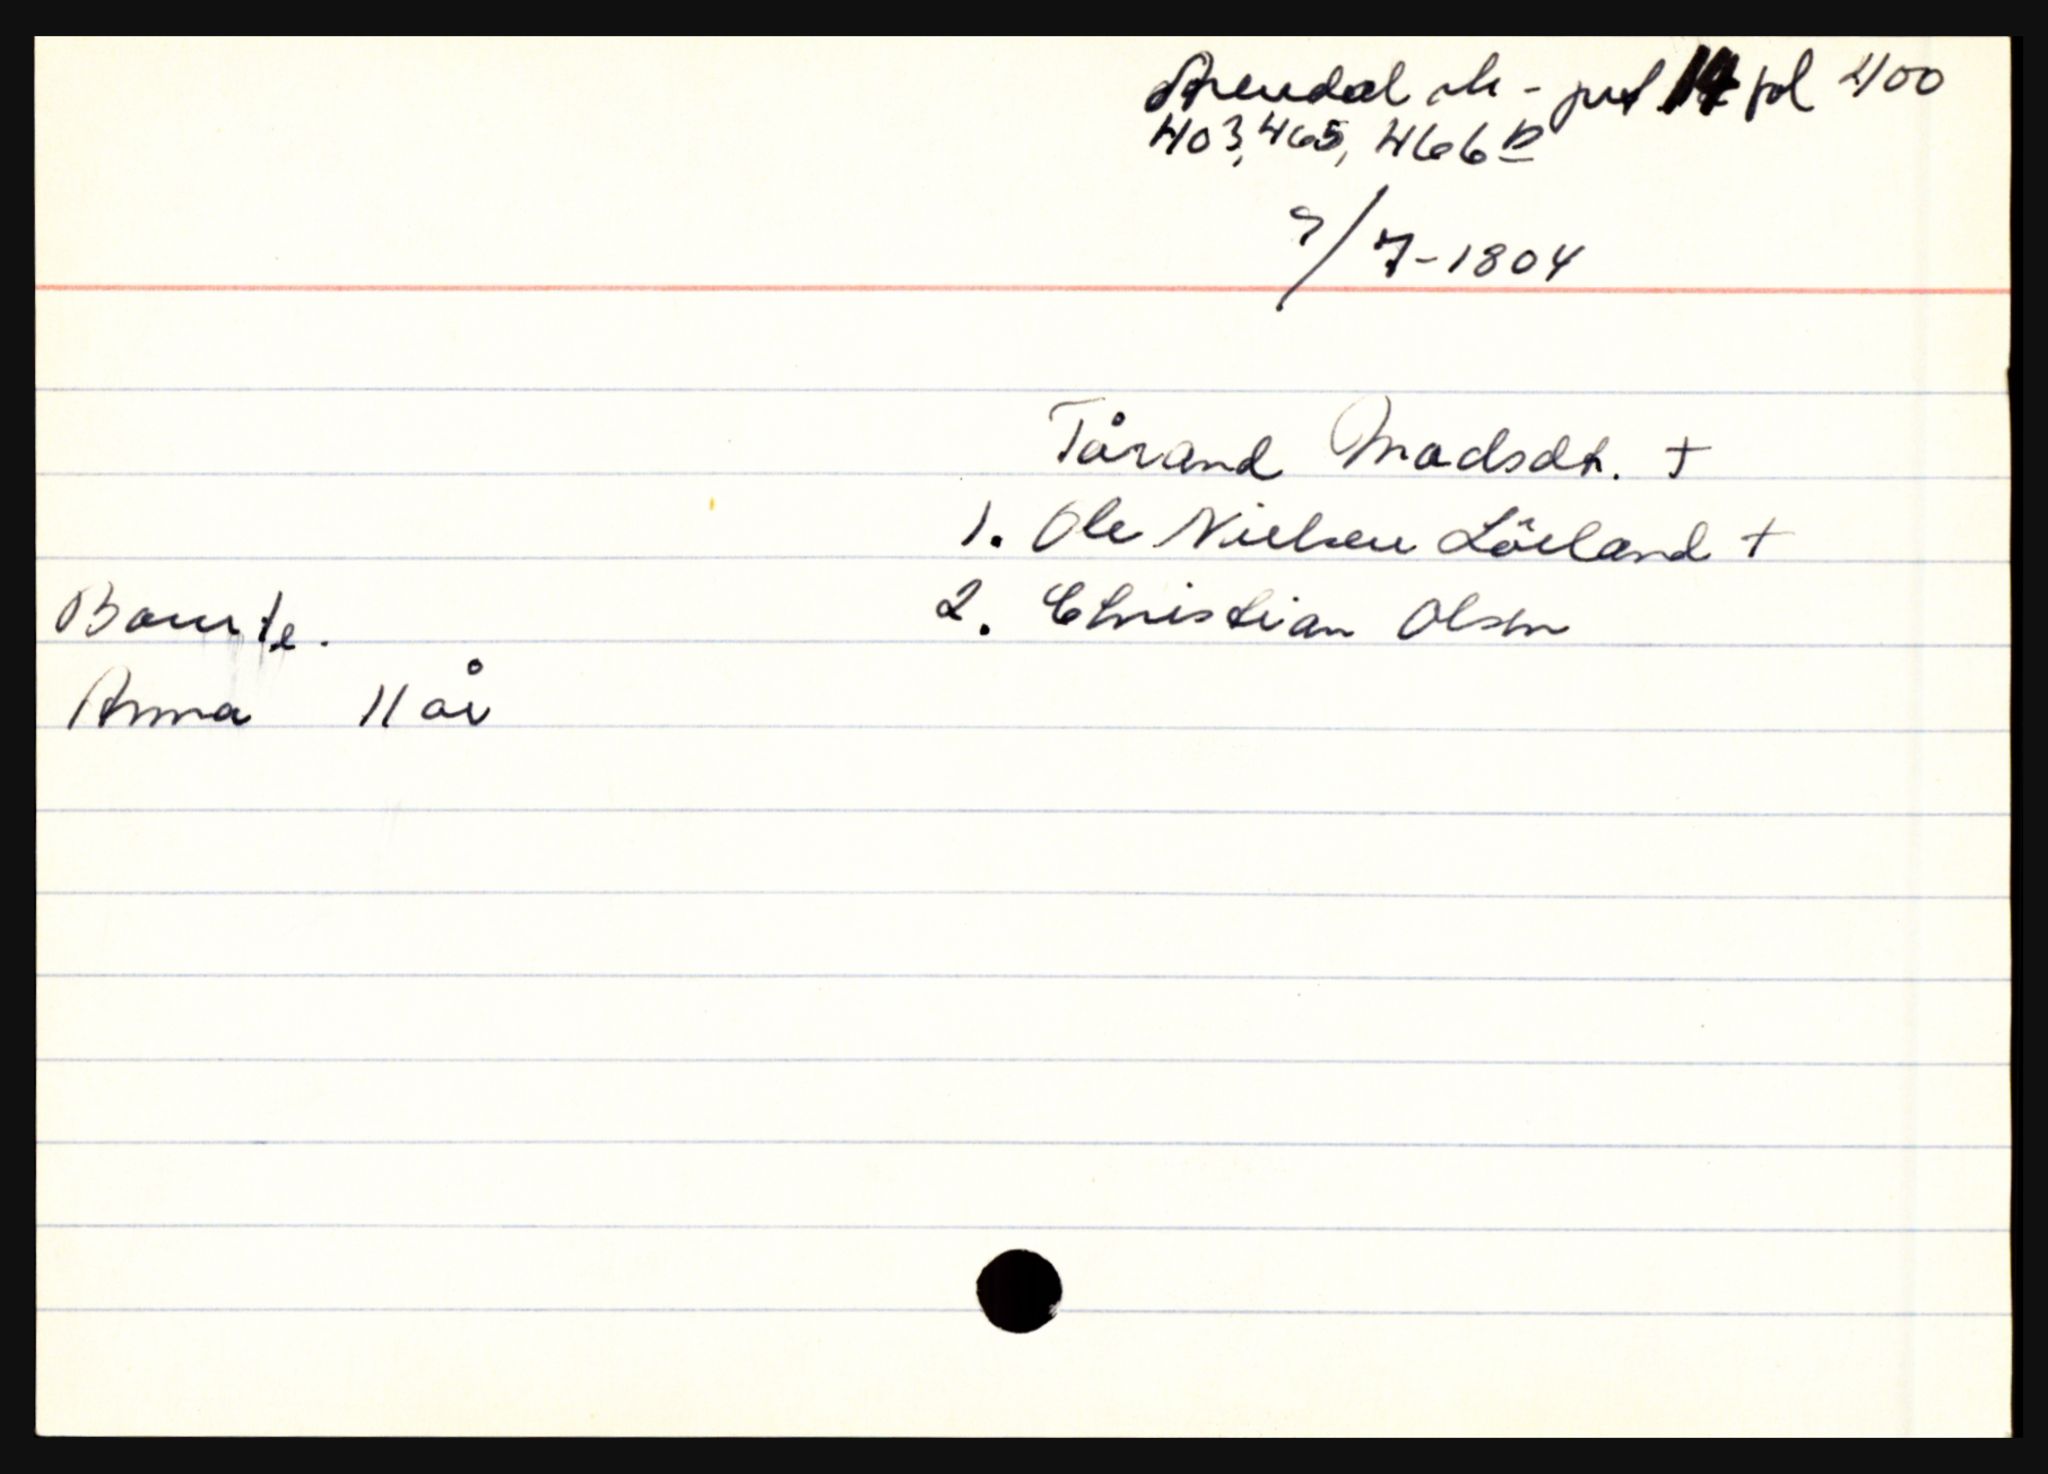 Arendal sk - prot 14 fol 400
403, 465, 466 b
9/7-1804
Tårand Madsdt. +
1. Ole Nielsen Löiland +
2. Christian Olsen
Anna 11 år